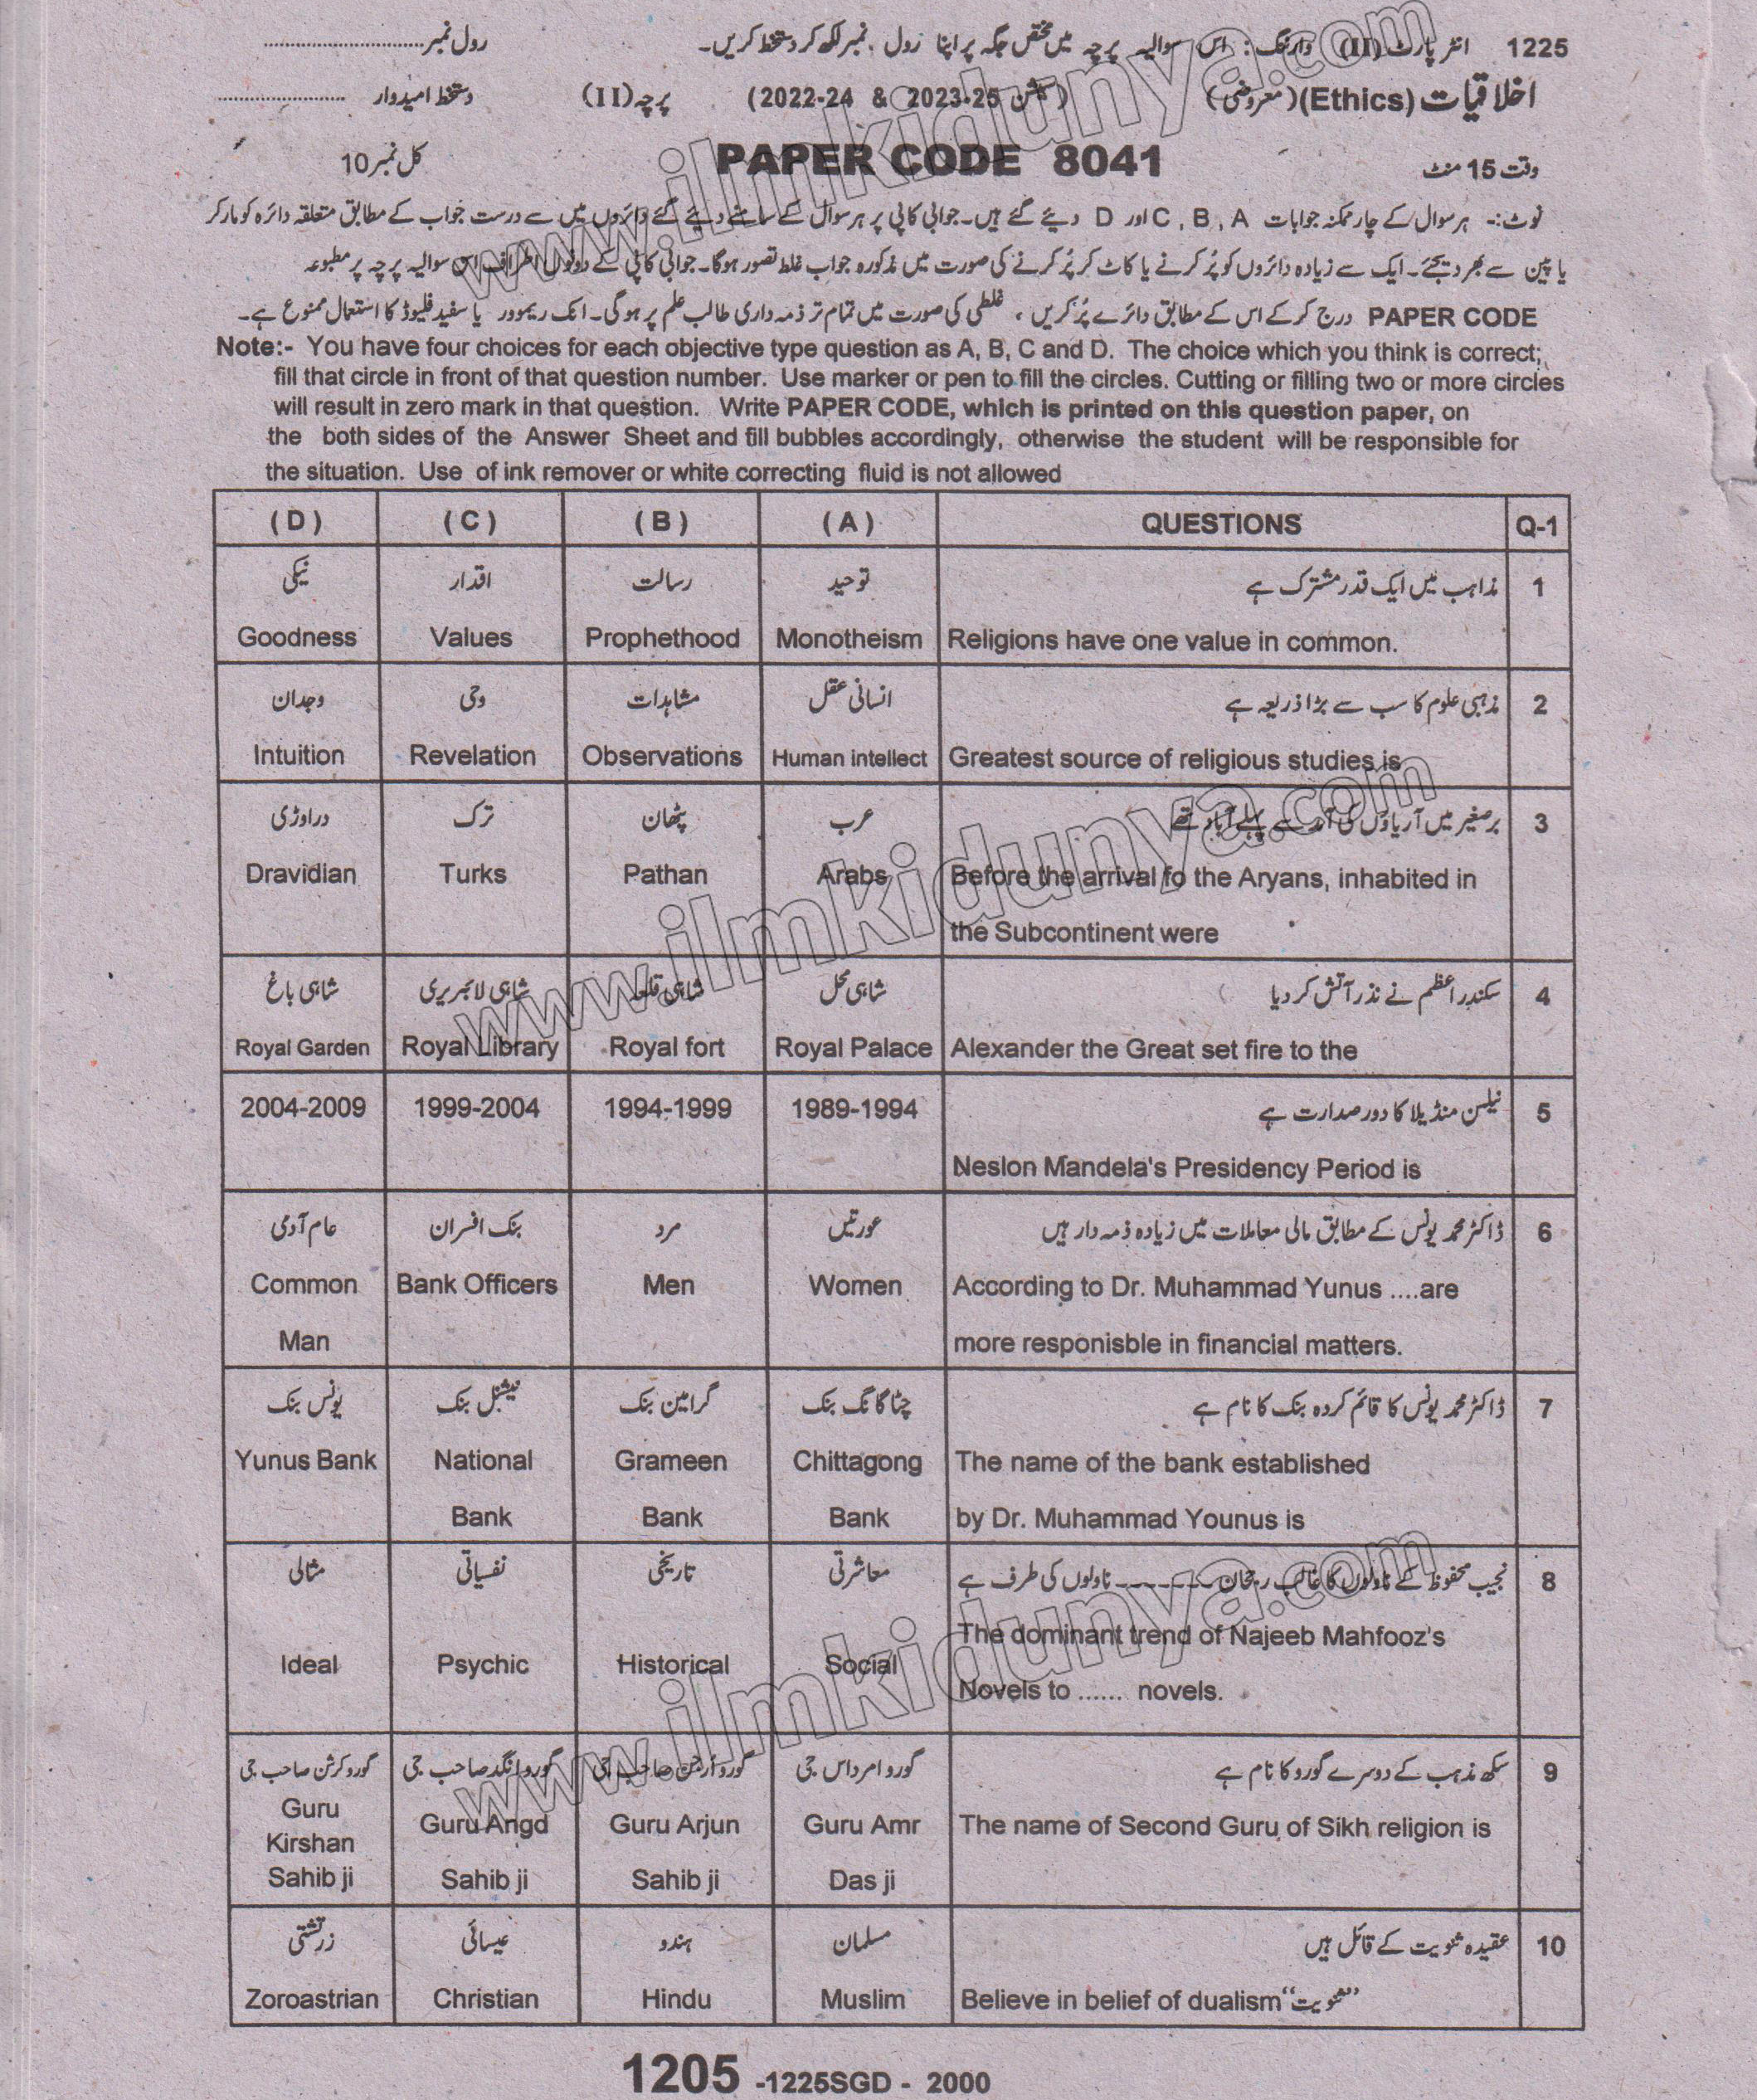 1225 انٹر پارٹ (II) وارننگ: اس سوالیہ پرچہ میں مختص جگہ پر اپنا رول نمبر لکھ کر دستخط کریں۔ رول نمبر ........................
اخلاقیات (Ethics) (معروضی) (سیشن 2023-25 & 2022-24) پرچہ (II) دستخط امیدوار ....................
وقت 15 منٹ PAPER CODE 8041 کل نمبر 10
نوٹ:- ہر سوال کے چار ممکنہ جوابات C , B , A اور D دیئے گئے ہیں۔ جوابی کاپی پر ہر سوال کے سامنے دیئے گئے دائروں میں سے درست جواب کے مطابق متعلقہ دائرہ کو مارکر
یا پین سے بھر دیجئے۔ ایک سے زیادہ دائروں کو پُر کرنے یا کاٹ کر پُر کرنے کی صورت میں مذکورہ جواب غلط تصور ہوگا۔ جوابی کاپی کے دونوں اطراف اس سوالیہ پرچہ پر مطبوعہ
PAPER CODE درج کر کے اس کے مطابق دائرے پُر کریں ، غلطی کی صورت میں تمام تر ذمہ داری طالب علم پر ہوگی۔ انک ریموور یا سفید فلیوڈ کا استعمال ممنوع ہے۔
Note:- You have four choices for each objective type question as A, B, C and D. The choice which you think is correct;
fill that circle in front of that question number. Use marker or pen to fill the circles. Cutting or filling two or more circles
will result in zero mark in that question. Write PAPER CODE, which is printed on this question paper, on
the both sides of the Answer Sheet and fill bubbles accordingly, otherwise the student will be responsible for
the situation. Use of ink remover or white correcting fluid is not allowed
( D ) ( C ) ( B ) ( A ) QUESTIONS Q-1
نیکی اقدار رسالت توحید مذاہب میں ایک قدر مشترک ہے 1
Goodness Values Prophethood Monotheism Religions have one value in common.
وجدان وحی مشاہدات انسانی عقل مذہبی علوم کا سب سے بڑا ذریعہ ہے 2
Intuition Revelation Observations Human intellect Greatest source of religious studies is
دراوڑی ترک پٹھان عرب برصغیر میں آریاؤں کی آمد سے پہلے آباد تھے 3
Dravidian Turks Pathan Arabs Before the arrival fo the Aryans, inhabited in
the Subcontinent were
شاہی باغ شاہی لائبریری شاہی قلعہ شاہی محل سکندر اعظم نے نذر آتش کر دیا 4
Royal Garden Royal Library Royal fort Royal Palace Alexander the Great set fire to the
2004-2009 1999-2004 1994-1999 1989-1994 نیلسن منڈیلا کا دور صدارت ہے 5
Neslon Mandela's Presidency Period is
عام آدمی بنک افسران مرد عورتیں ڈاکٹر محمد یونس کے مطابق مالی معاملات میں زیادہ ذمہ دار ہیں 6
Common Bank Officers Men Women According to Dr. Muhammad Yunus ....are
Man more responisble in financial matters.
یونس بنک نیشنل بنک گرامین بنک چٹاگانگ بنک ڈاکٹر محمد یونس کا قائم کردہ بنک کا نام ہے 7
Yunus Bank National Grameen Chittagong The name of the bank established
Bank Bank Bank by Dr. Muhammad Younus is
مثالی نفسیاتی تاریخی معاشرتی نجیب محفوظ کے ناولوں کا غالب رجحان -------- ناولوں کی طرف ہے 8
The dominant trend of Najeeb Mahfooz's
Ideal Psychic Historical Social
Novels to ...... novels.
گورو کرشن صاحب جی گورو انگد صاحب جی گورو ارجن صاحب جی گورو امرداس جی سکھ مذہب کے دوسرے گورو کا نام ہے 9
Guru Kirshan Guru Angd Guru Arjun Guru Amr The name of Second Guru of Sikh religion is
Sahib ji Sahib ji Sahib ji Das ji
زرتشتی عیسائی ہندو مسلمان عقیدہ ثنویت کے قائل ہیں 10
Zoroastrian Christian Hindu Muslim Believe in belief of dualism "ثنویت"
1205 -1225SGD - 2000
www.ilmkidunya.com
www.ilmkidunya.com
www.ilmkidunya.com